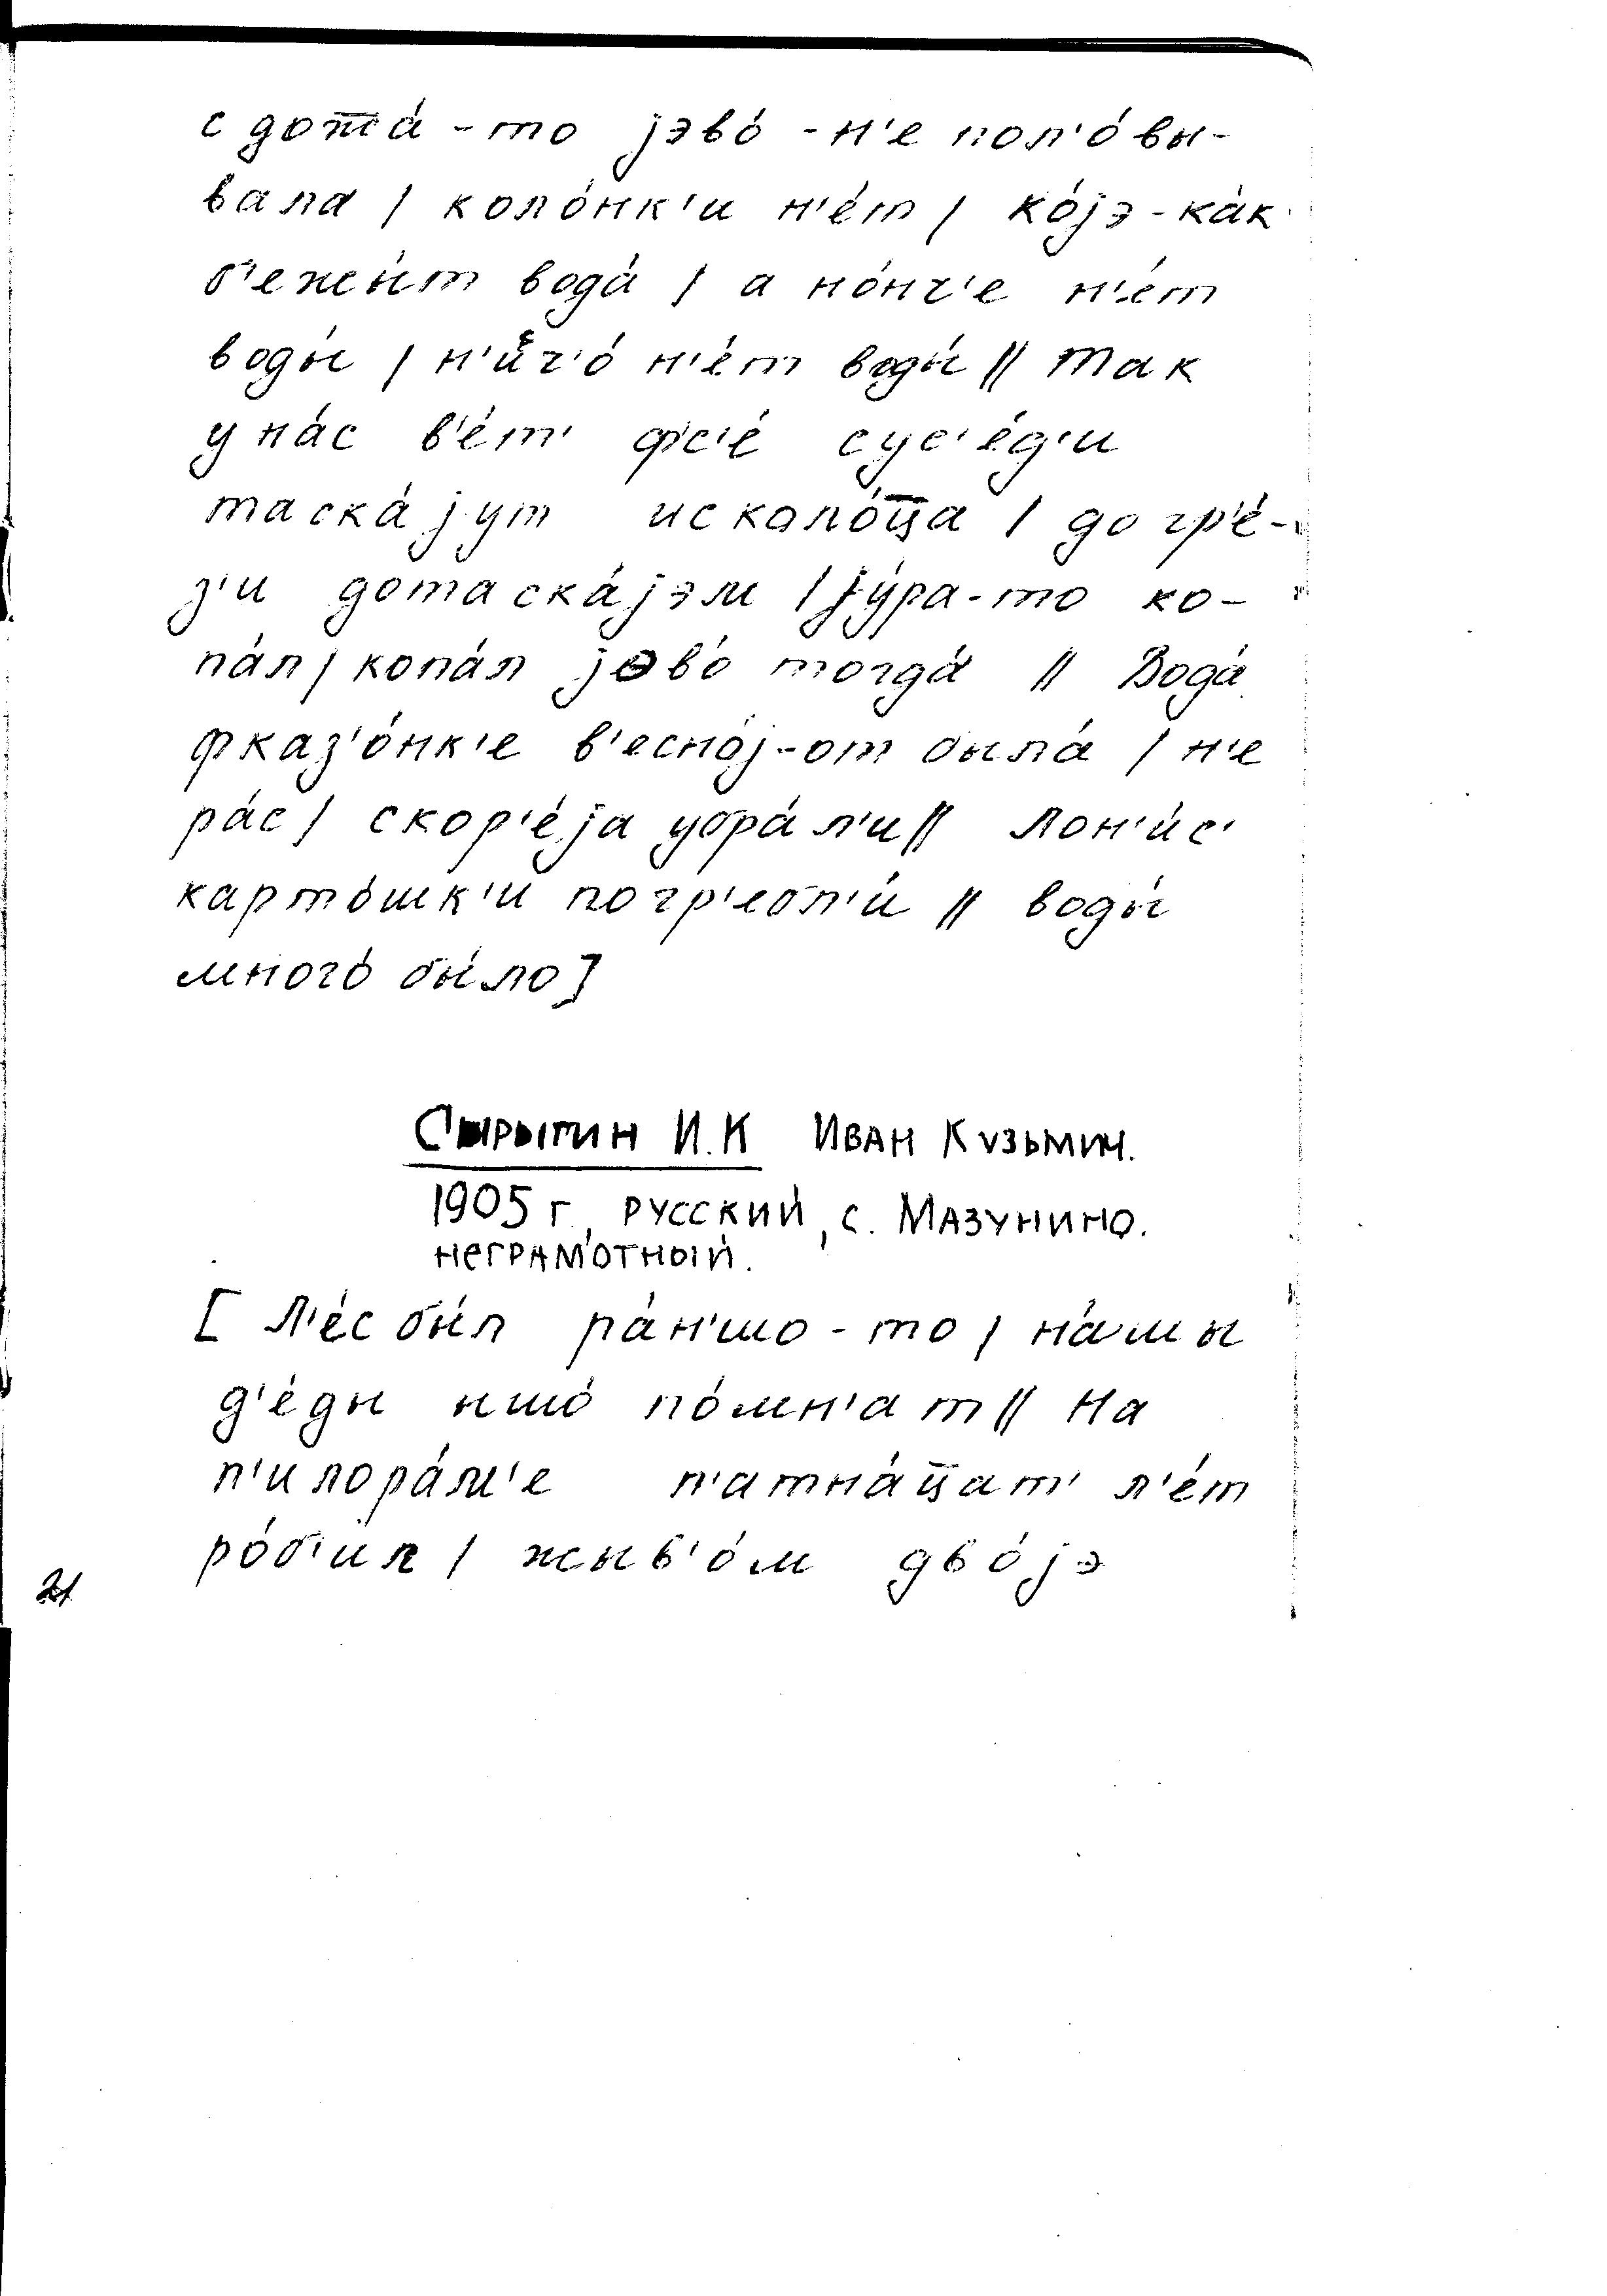 с дот̅а́-то jэво́-н'е пол'о́вы-
вала / коло́нк'и н'е́т / ко́jэ-ка́к
б'ежы́т вода́ / а но́нч'е н'е́т
воды́ / н'ич'о́ н'е́т воды́ // Так
у на́с в'е́т' ф'с'е́ сус'е́д'и
таска́jут ис коло́ц̅а / до гр'е́-
з'и дотаска́jэм / jу́ра-то ко-
па́л / копа́л jэво́ тогда́ // Вода́
фказ'о́нк'е в'есно́j-от была́ / н'е
ра́с / скор'е́jа убра́л'и // Лон'и́с'
карто́шк'и погр'ебл'и́ // воды́
много́ бы́ло]
Сырыпин И.К Иван Кузьмич.
1905 г, русский, с. Мазунино.
неграмотный.
[ Л'е́с бы́л ра́н'шо-то / на́шы
д'е́ды ишо́ по́мн'ат // На
п'илора́м'е п'атна́ц̅ат' л'е́т
ро́б'ил / жыв'о́м дво́jэ
21